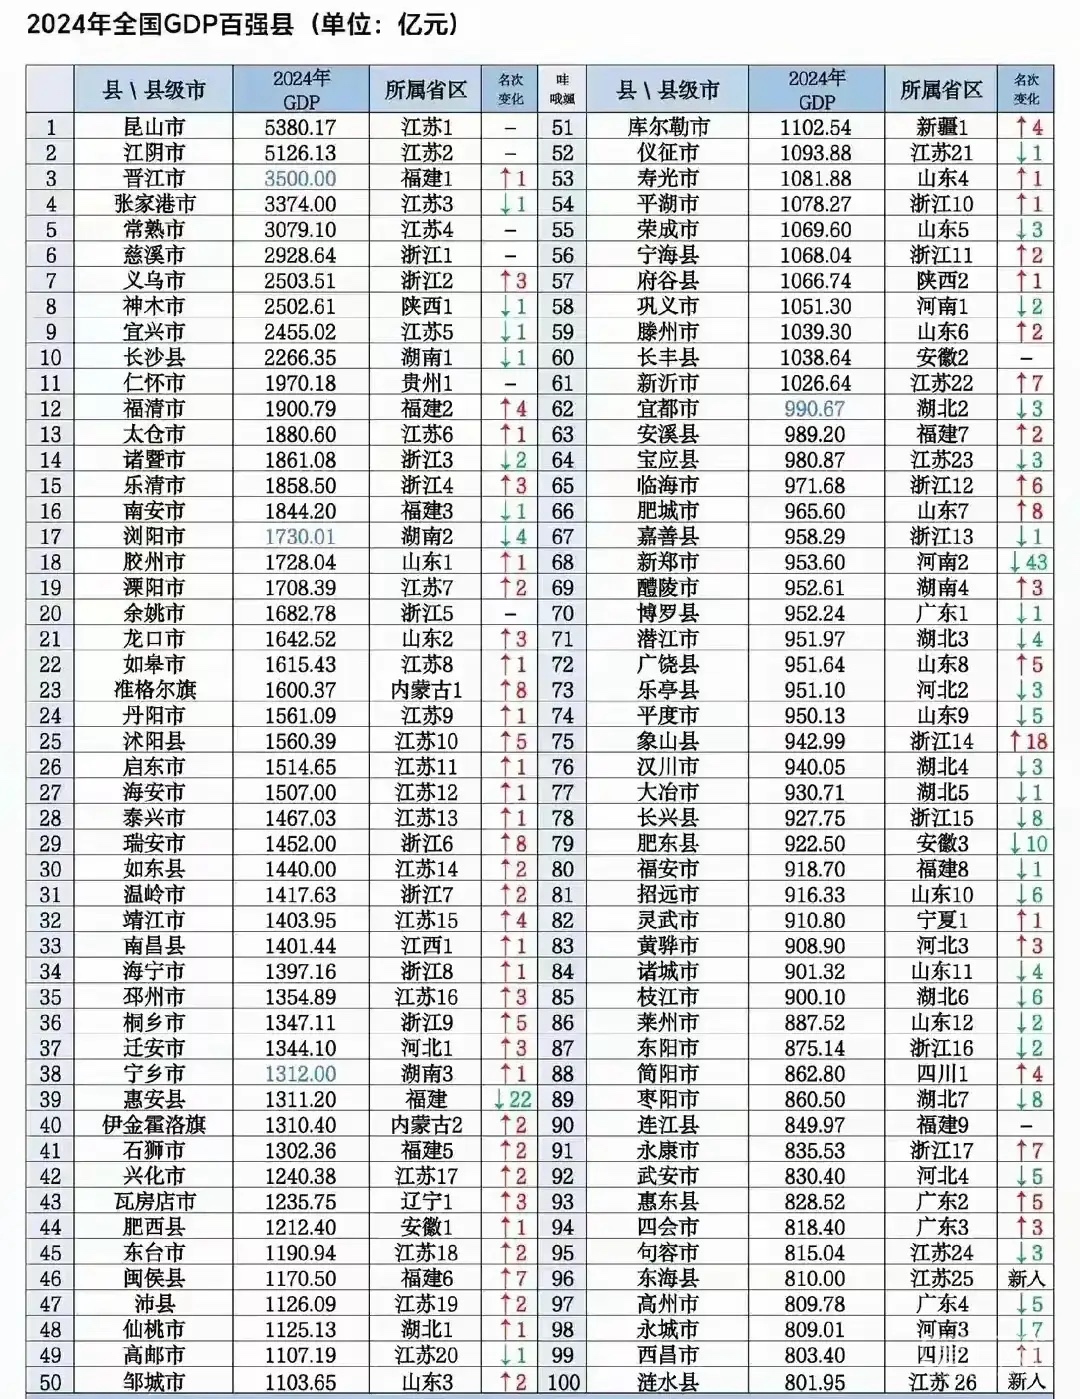 2024年全国GDP百强县（单位：亿元）
县\县级市 2024年GDP 所属省区 名次变化 哇哦飒 县\县级市 2024年GDP 所属省区 名次变化
1 昆山市 5380.17 江苏1 – 51 库尔勒市 1102.54 新疆1 ↑4
2 江阴市 5126.13 江苏2 – 52 仪征市 1093.88 江苏21 ↓1
3 晋江市 3500.00 福建1 ↑1 53 寿光市 1081.88 山东4 ↑1
4 张家港市 3374.00 江苏3 ↓1 54 平湖市 1078.27 浙江10 ↑1
5 常熟市 3079.10 江苏4 – 55 荣成市 1069.60 山东5 ↓3
6 慈溪市 2928.64 浙江1 – 56 宁海县 1068.04 浙江11 ↑2
7 义乌市 2503.51 浙江2 ↑3 57 府谷县 1066.74 陕西2 ↑1
8 神木市 2502.61 陕西1 ↓1 58 巩义市 1051.30 河南1 ↓2
9 宜兴市 2455.02 江苏5 ↓1 59 滕州市 1039.30 山东6 ↑2
10 长沙县 2266.35 湖南1 ↓1 60 长丰县 1038.64 安徽2 –
11 仁怀市 1970.18 贵州1 – 61 新沂市 1026.64 江苏22 ↑7
12 福清市 1900.79 福建2 ↑4 62 宜都市 990.67 湖北2 ↓3
13 太仓市 1880.60 江苏6 ↑1 63 安溪县 989.20 福建7 ↑2
14 诸暨市 1861.08 浙江3 ↓2 64 宝应县 980.87 江苏23 ↓3
15 乐清市 1858.50 浙江4 ↑3 65 临海市 971.68 浙江12 ↑6
16 南安市 1844.20 福建3 ↓1 66 肥城市 965.60 山东7 ↑8
17 浏阳市 1730.01 湖南2 ↓4 67 嘉善县 958.29 浙江13 ↓1
18 胶州市 1728.04 山东1 ↑1 68 新郑市 953.60 河南2 ↓43
19 溧阳市 1708.39 江苏7 ↑2 69 醴陵市 952.61 湖南4 ↑3
20 余姚市 1682.78 浙江5 – 70 博罗县 952.24 广东1 ↓1
21 龙口市 1642.52 山东2 ↑3 71 潜江市 951.97 湖北3 ↓4
22 如皋市 1615.43 江苏8 ↑1 72 广饶县 951.64 山东8 ↑5
23 准格尔旗 1600.37 内蒙古1 ↑8 73 乐亭县 951.10 河北2 ↓3
24 丹阳市 1561.09 江苏9 ↑1 74 平度市 950.13 山东9 ↓5
25 沭阳县 1560.39 江苏10 ↑5 75 象山县 942.99 浙江14 ↑18
26 启东市 1514.65 江苏11 ↑1 76 汉川市 940.05 湖北4 ↓3
27 海安市 1507.00 江苏12 ↑1 77 大冶市 930.71 湖北5 ↓1
28 泰兴市 1467.03 江苏13 ↑1 78 长兴县 927.75 浙江15 ↓8
29 瑞安市 1452.00 浙江6 ↑8 79 肥东县 922.50 安徽3 ↓10
30 如东县 1440.00 江苏14 ↑2 80 福安市 918.70 福建8 ↓1
31 温岭市 1417.63 浙江7 ↑2 81 招远市 916.33 山东10 ↓6
32 靖江市 1403.95 江苏15 ↑4 82 灵武市 910.80 宁夏1 ↑1
33 南昌县 1401.44 江西1 ↑1 83 黄骅市 908.90 河北3 ↑3
34 海宁市 1397.16 浙江8 ↑1 84 诸城市 901.32 山东11 ↓4
35 邳州市 1354.89 江苏16 ↑3 85 枝江市 900.10 湖北6 ↓6
36 桐乡市 1347.11 浙江9 ↑5 86 莱州市 887.52 山东12 ↓2
37 迁安市 1344.10 河北1 ↑3 87 东阳市 875.14 浙江16 ↓2
38 宁乡市 1312.00 湖南3 ↑1 88 简阳市 862.80 四川1 ↑4
39 惠安县 1311.20 福建 ↓22 89 枣阳市 860.50 湖北7 ↓8
40 伊金霍洛旗 1310.40 内蒙古2 ↑2 90 连江县 849.97 福建9 –
41 石狮市 1302.36 福建5 ↑2 91 永康市 835.53 浙江17 ↑7
42 兴化市 1240.38 江苏17 ↑2 92 武安市 830.40 河北4 ↓5
43 瓦房店市 1235.75 辽宁1 ↑3 93 惠东县 828.52 广东2 ↑5
44 肥西县 1212.40 安徽1 ↑1 94 四会市 818.40 广东3 ↑3
45 东台市 1190.94 江苏18 ↑2 95 句容市 815.04 江苏24 ↓3
46 闽侯县 1170.50 福建6 ↑7 96 东海县 810.00 江苏25 新入
47 沛县 1126.09 江苏19 ↑2 97 高州市 809.78 广东4 ↓5
48 仙桃市 1125.13 湖北1 ↑1 98 永城市 809.01 河南3 ↓7
49 高邮市 1107.19 江苏20 ↓1 99 西昌市 803.40 四川2 ↑1
50 邹城市 1103.65 山东3 ↑2 100 涟水县 801.95 江苏26 新入